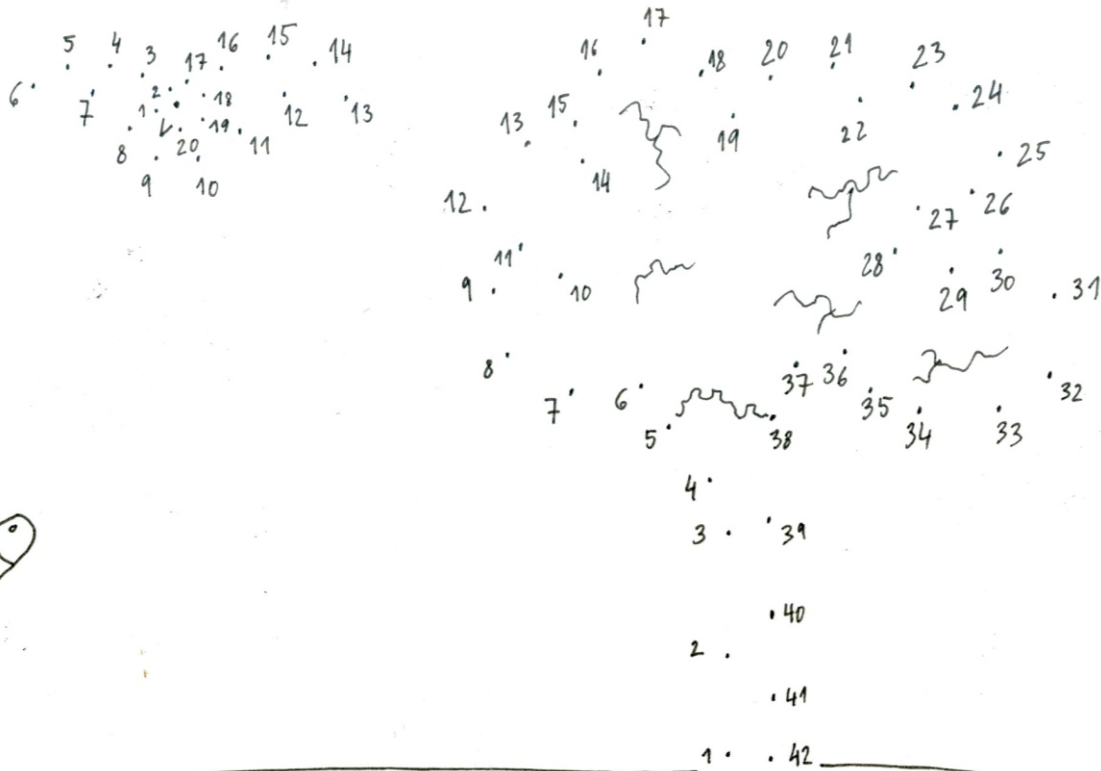 5 4 3 17 16 15 14
6 7 2 1 18 12 13
8 20 19 11
9 10
17
16 18 20 21 23
13 15 19 22 24
14 25
12 27 26
11 28
9 10 29 30 31
8 37 36 32
7 6 35
5 38 34 33
4
3 39
40
2
41
1 42